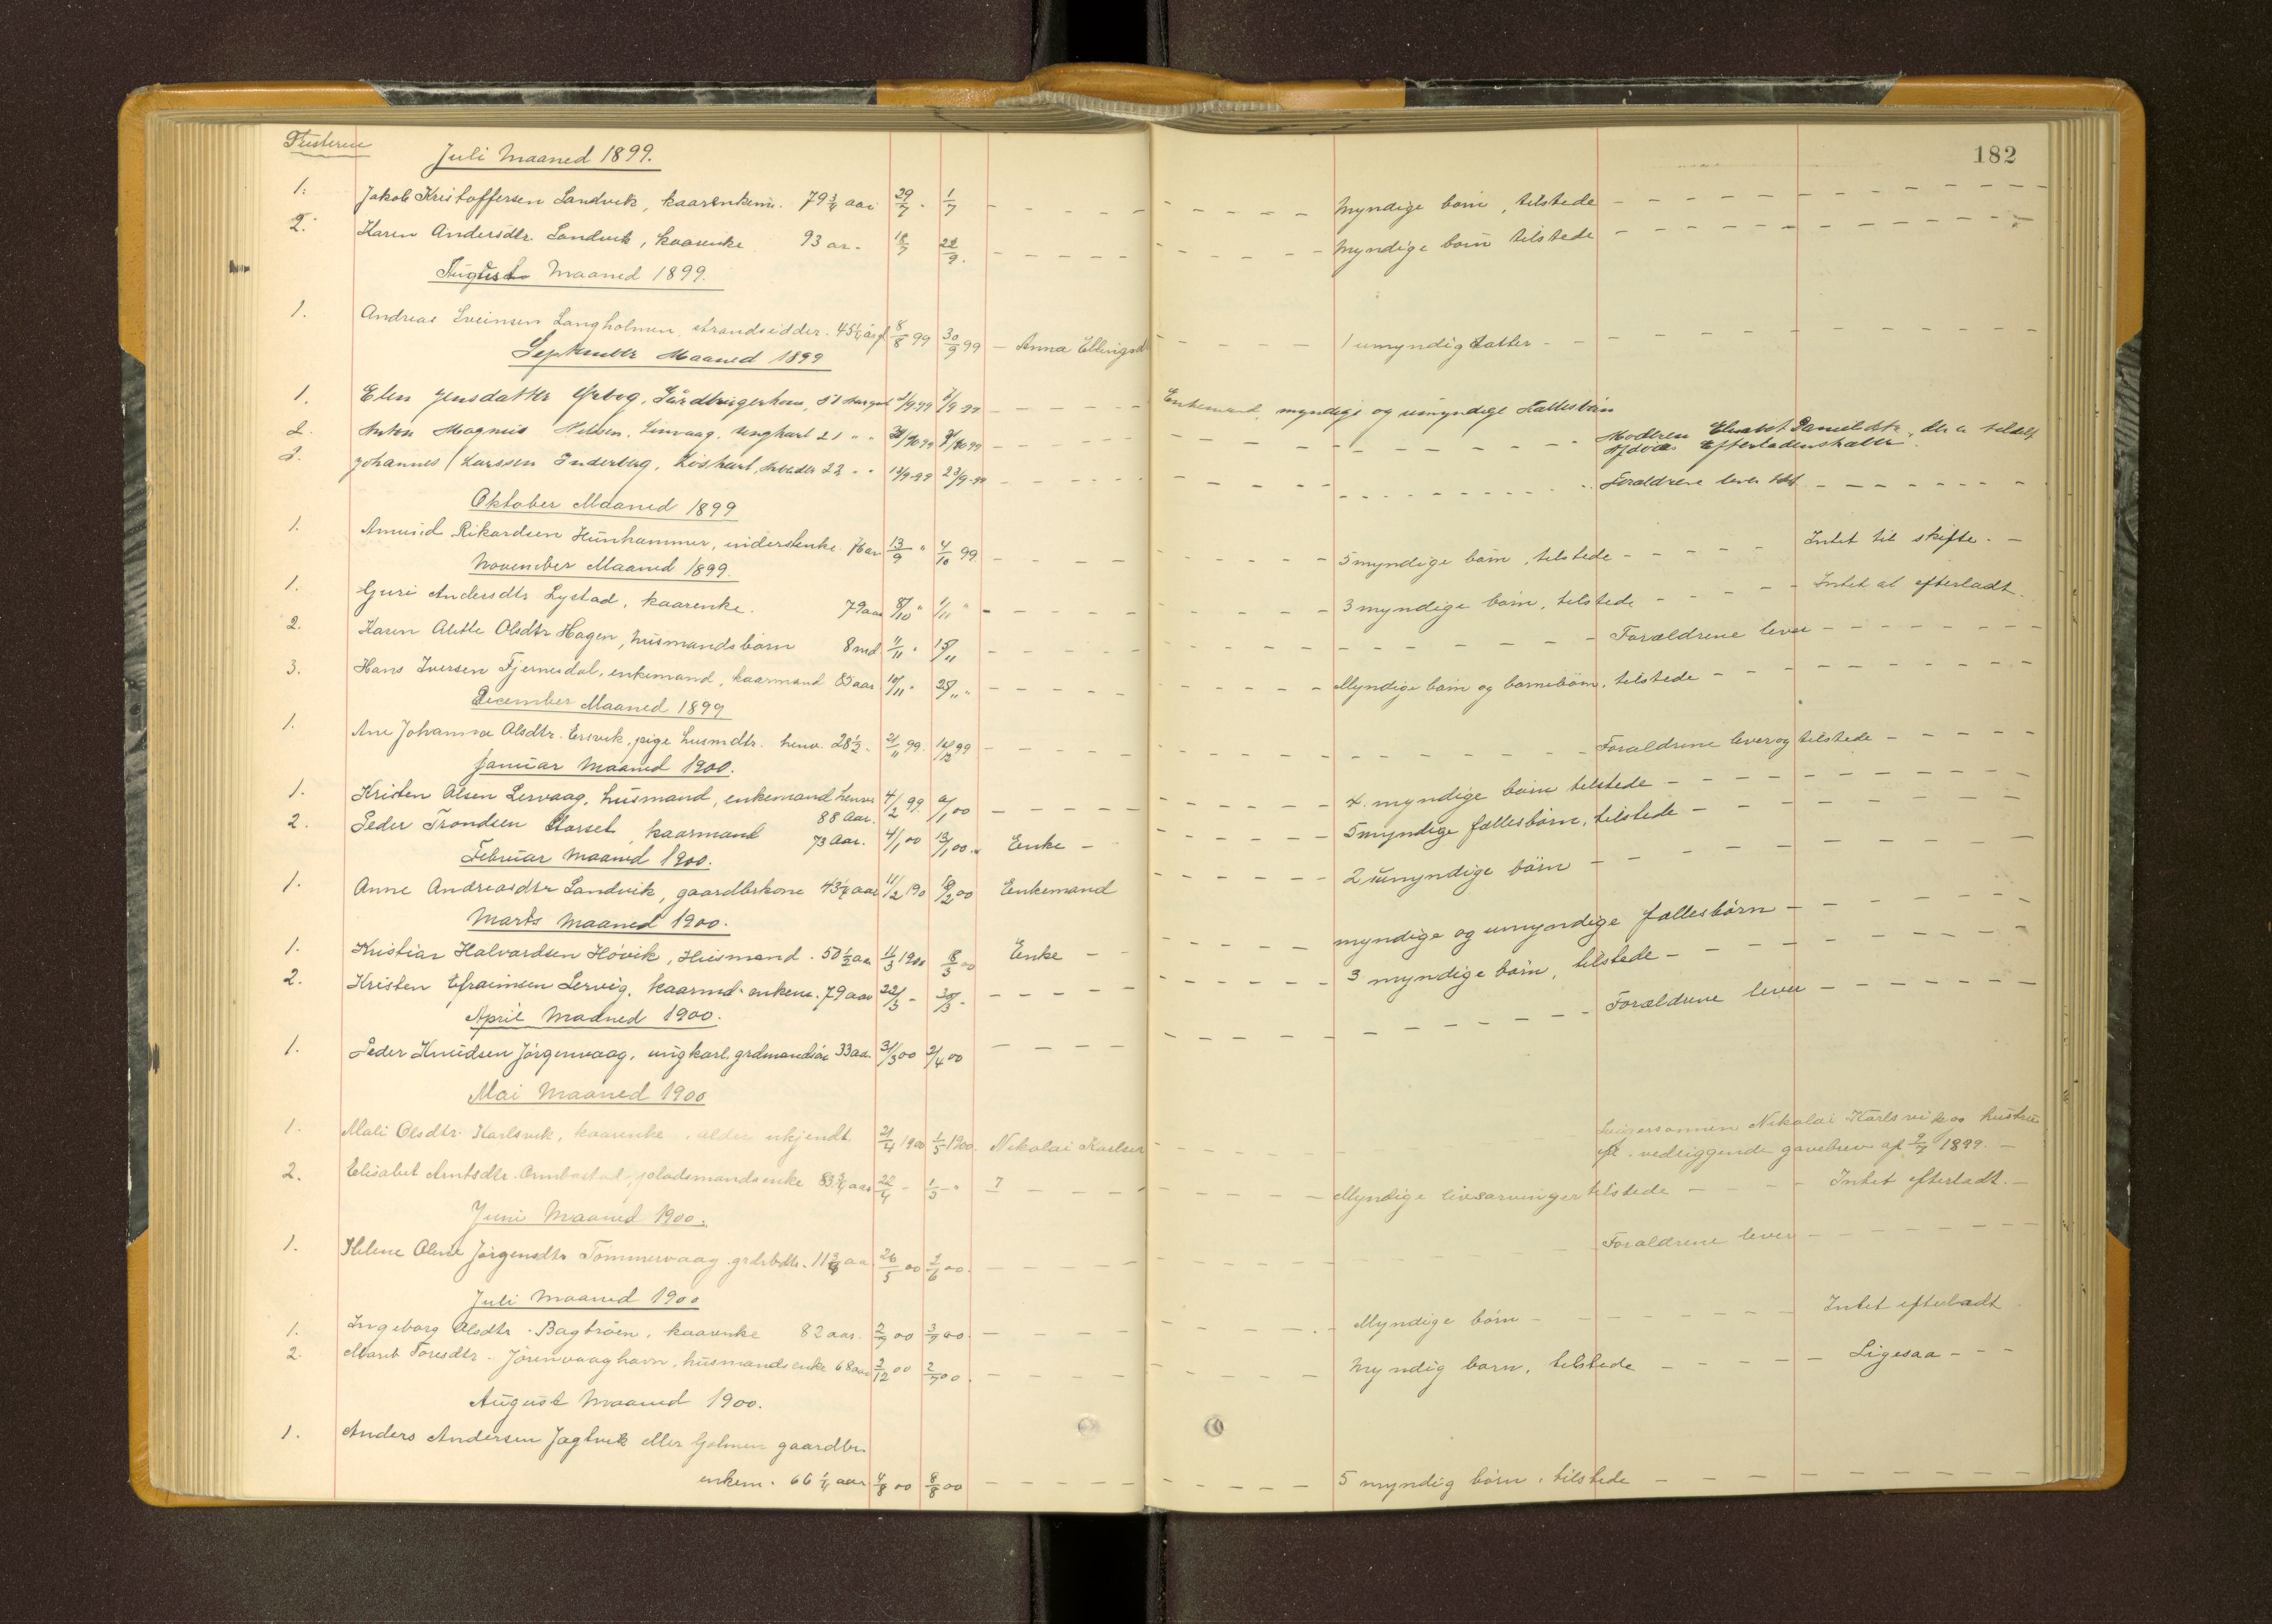 182
Juli Maaned 1899.
1. Jakob Kristoffersen Sandvik, kaarenkem. 79 3/4 aar 29/7 - 1/7 - - - Myndige børn, tilstede - - -
2. Karen Andersdtr. Sandvik, kaarenke 93 ar - 18/7 22/9. - - - Myndige børn tilstede - - -
August Maaned 1899.
1. Andreas Sveinsen Langholmen strandsidder. 45 1/4 8/8 99 30/9 99 - Anna Ellingsd - - - 1 umyndig datter - - -
September Maaned 1899
1. Elen Jensdatter - - - Enkemand, myndige og umyndige Fællesbørn
2. Anton Magnus - - - Moderen
Efterladenskaber
3. Johannes Larssen Inderberg, - 22 " " 13/9-99 23/9-99 - - - Forældrene lever - - -
Oktober Maaned 1899
1. Amund Rikardsen Hunhammer, 13/9 " 4/10 99 - - - 5 myndige børn, tilstede - - - Intet til skifte. -
November Maaned 1899.
1. Guri Andersdtr Lystad, kaarenke. 79 aar 8/10 " 1/11 " - - - 3 myndige børn, tilstede - - - Intet at efterladt.
2. Karen Aletle Olsdtr Hagen, husmandsbarn 8 md 1/11 " 15/11 - - - Forældrene lever - - -
3. Hans Iversen Fjernesdal, enkemand, kaarmand 85 aar 10/11 " 25/11 " - - - Myndige børn og børnebørn, tilstede - -
December Maaned 1899
1. Ane Johanna Olsdtr. Ersvik, pige husmdtr. henv. 28 1/2 - 21/11 99. 16/12 99 - - - Forældrene lever og tilstede - - -
Januar Maaned 1900.
1. Kristen Olsen Lervaag, husmand, enkemand henv. 4/12 99. 9/1 00 - - - 4 myndige børn tilstede - - -
88 Aar.
2. Peder Trondsen Storset, kaarmand 73 Aar. 4/1 00 13/1 00. Enke - - - 5 myndige fællesbørn, tilstede -
Februar Maaned 1900.
1. Anne Andreasdtr Sandvik, gaardbrkone 43 1/4 aar 11/2 190 18/2 00 Enkemand - - - 2 umyndige børn - - -
Marts Maaned 1900.
1. Kristian Halvardsen Høvik, Husmand. 50 1/2 aar 1/3 1900 8/3 00 Enke - - - myndige og umyndige fællesbørn - - -
2. Kristen Efraimsen Lervig, kaarmd. enkem. 79 aar 22/3 - 30/3 - - - 3 myndige børn, tilstede - - -
April Maaned 1900.
1. Peder Knudsen Jørgenvaag, ungkarl, grdmandsøn 33 aar 31/3 00 2/4 00 - - - Forældrene lever - - -
Mai Maaned 1900
1. Mali Olsdtr. Karlsvik, kaarenke, alder ukjendt 21/4 1900 1/5 1900. Nikolai Karlsvi - - - Svigersønnen Nikolai Karlsvik og hustru
vedliggende gavebrev af 9/7 1899. -
2. Elisabet Arntsdtr. Ormbostad, pladsmandsenke 83 3/4 aar 22/4 - 1/5 - " ? - - - Myndige livsarvinger tilstede - - - Intet efterladt. -
Juni Maaned 1900.
1. Helene Oline Jørgensdtr Tømmervaag grdbrdtr. 11 3/4 aar 26/5 00 2/6 00. - - - Forældrene lever - - -
Juli Maaned 1900
1. Ingeborg Olsdtr. Bagtrøen, kaarenke 82 aar. 2/7 00 3/7 00. - - - Myndige børn - - - Intet efterladt.
2. Marit Toresdtr - Jørenvaaghavn, husmandsenke 68 aar 3/12 00 2/7 00. - - - Myndig barn, tilstede - - - Ligesaa - - -
August Maaned 1900.
1. Anders Andersen Jagtvik eller Golmen gaardbr.
enkem. 66 1/4 aar 4/8 00 8/8 00 - - - 5 myndig børn, tilstede - - -